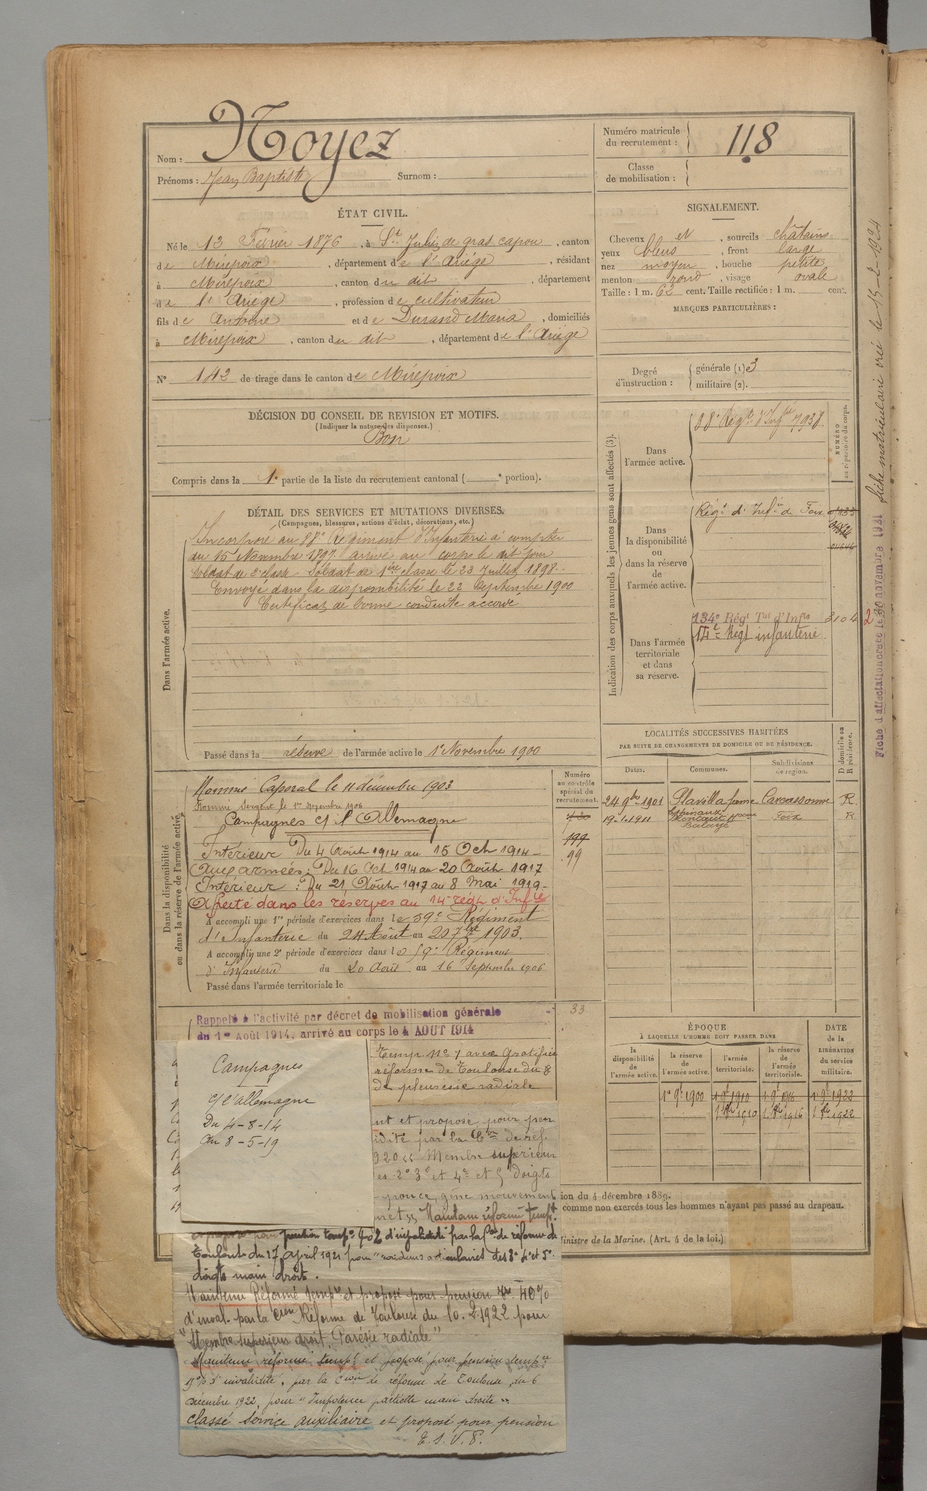 Nom : Noyez
Prénoms : Jean Baptiste Surnom :
Numéro matricule du recrutement : 118
Classe de mobilisation :
ÉTAT CIVIL.
Né le 13 Février 1876, à St Julien de gras capou, canton
de Mirepoix, département de l'Ariège, résidant
à Mirepoix, canton du dit, département
de l'Ariège, profession de cultivateur
fils de Antoine et de Durand Maria, domiciliés
à Mirepoix, canton du dit, département de l'Ariège
N° 142 de tirage dans le canton de Mirepoix
SIGNALEMENT.
Cheveux et, sourcils châtains
yeux bleus, front large
nez moyen, bouche petite
menton rond, visage ovale
Taille : 1 m. 62 cent. Taille rectifiée : 1 m. cent.
MARQUES PARTICULIÈRES :
Degré d'instruction : générale (1) 3
militaire (2).
DÉCISION DU CONSEIL DE REVISION ET MOTIFS.
(Indiquer la nature des dispenses.)
Bon
Compris dans la 1e partie de la liste du recrutement cantonal ( e portion).
DÉTAIL DES SERVICES ET MUTATIONS DIVERSES.
(Campagnes, blessures, actions d'éclat, décorations, etc.)
Dans l'armée active.
Incorporé au 88e Régiment d'Infanterie à compter
du 16 Novembre 1897 arrivé au corps le dit jour
Soldat de 2e classe Soldat de 1ère classe le 23 Juillet 1898.
Envoyé dans la disponibilité le 22 Septembre 1900
Certificat de bonne conduite accordé
Passé dans la réserve de l'armée active le 1er Novembre 1900
Indication des corps auxquels les jeunes gens sont affectés (3).
NUMÉRO au répertoire du corps.
Dans l'armée active.
88e Régt d'Infie 7928
Dans la disponibilité ou dans la réserve de l'armée active.
Régt d'Infie de Foix
Dans l'armée territoriale et dans sa réserve.
134e Régt Tal d'Infie 3104
14e Régt infanterie
LOCALITÉS SUCCESSIVES HABITÉES
PAR SUITE DE CHANGEMENTS DE DOMICILE OU DE RÉSIDENCE.
Dates. Communes. Subdivisions de région. D domicile ou R résidence.
24 9bre 1901 Plavilla Carcassonne R
19-1-1911 Foix R
Dans la disponibilité ou dans la réserve de l'armée active.
Numéro au contrôle spécial du recrutement.
Nommé Caporal le 11 décembre 1903
Nommé Sergent le 1er Septembre 1906
Campagnes c/ l'Allemagne
199
99
Intérieur Du 4 Août 1914 au 15 Oct 1914-
Aux armées : Du 16 Oct 1914 au 20 Août 1917
Intérieur : Du 21 Août 1917 au 8 Mai 1919-
Affecté dans les réserves au 14e régt d'Infie
A accompli une 1re période d'exercices dans le 59e Régiment
d'Infanterie du 24 Août au 20 7bre 1903.
A accompli une 2e période d'exercices dans le 59e Régiment
d'Infanterie du 20 Août au 16 Septembre 1906
Passé dans l'armée territoriale le
Rappelé à l'activité par décret de mobilisation générale 33
du 1er Août 1914, arrivé au corps le 4 AOUT 1914
ÉPOQUE
À LAQUELLE L'HOMME DOIT PASSER DANS
DATE de la LIBÉRATION du service militaire.
la disponibilité de l'armée active. la réserve de l'armée active. l'armée territoriale. la réserve de l'armée territoriale.
1er 9bre 1900 1er 9bre 1910 1er 9bre 1916 1er 9bre 1922
Campagnes
c/ l'Allemagne
Du 4-8-14
Au 8-5-19
temp n° 1 avec gratification
réforme de Toulouse du 8
de pleuresie radiale
nt et proposé pour pen
Membre supérieur
es 2e 3e et 4e et 5 doigts
pouce, gêne mouvement
Maintenu réformé tempt
pension tempre 40% d'invalidité par la Con de réforme de
Toulouse du 17 avril 1921 pour des 3e 4e et 5e
doigts main droite.
Maintenu Réformé tempre et proposé pour pension 40%
d'inval. par la Cion Réforme de Toulouse du 10-2-1922 pour
"Membre supérieur droit, Paresie radiale"
Maintenu réformé tempt et proposé pour pension tempre
d'invalidité, par la Cion de réforme de Toulouse du 6
décembre 1922, pour "Impotence partielle main droite"
classé service auxiliaire et proposé pour pension
E.S.V.P.
ion du 4 décembre 1889.
comme non exercés tous les hommes n'ayant pas passé au drapeau.
Ministre de la Marine. (Art. 4 de la loi.)
Fiche d'affectation créée le 30 novembre 1921 fiche matriculaire créé le 15-2-1924